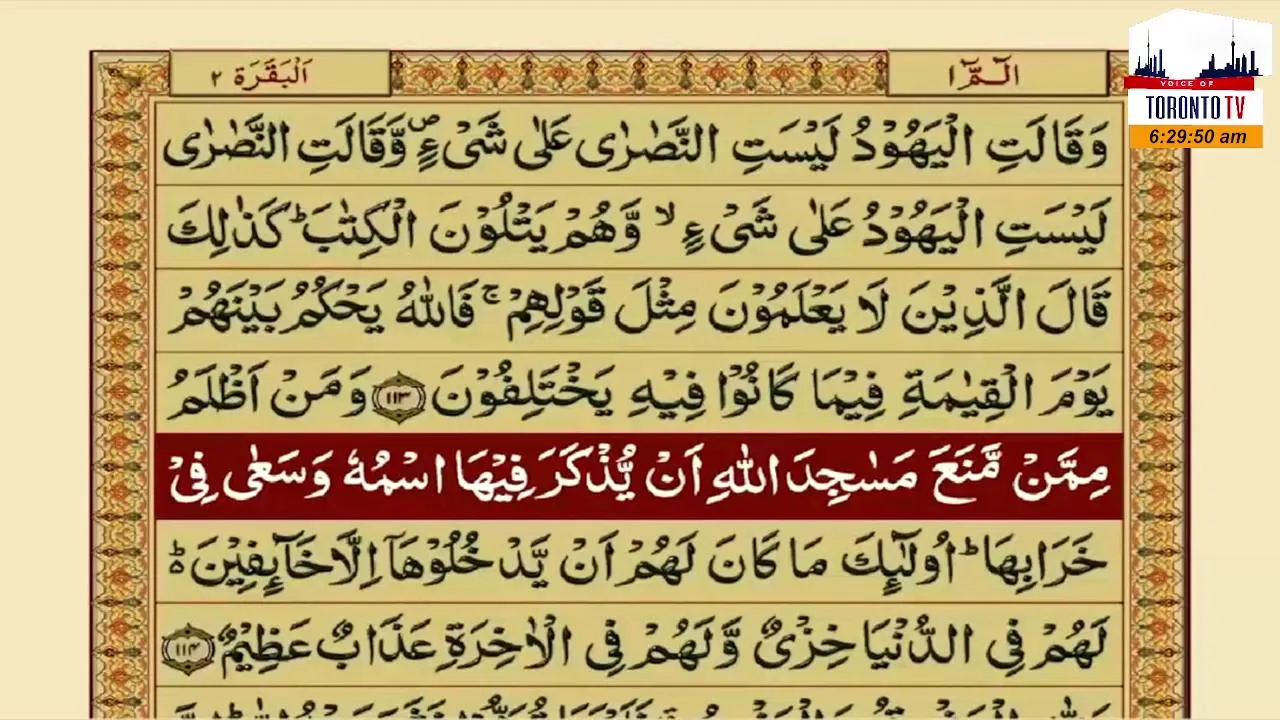 الٓمّٓ ١
اَلْبَقَرَة ٢
VOICE OF
TORONTO TV
6:29:50 am
وَقَالَتِ الْيَهُوْدُ لَيْسَتِ النَّصٰرٰى عَلٰى شَىْءٍ ۪ وَّقَالَتِ النَّصٰرٰى
لَيْسَتِ الْيَهُوْدُ عَلٰى شَىْءٍ ۙ وَّهُمْ يَتْلُوْنَ الْكِتٰبَ ؕ كَذٰلِكَ
قَالَ الَّذِيْنَ لَا يَعْلَمُوْنَ مِثْلَ قَوْلِهِمْ ۚ فَاللّٰهُ يَحْكُمُ بَيْنَهُمْ
يَوْمَ الْقِيٰمَةِ فِيْمَا كَانُوْا فِيْهِ يَخْتَلِفُوْنَ ﴿۱۱۳﴾ وَمَنْ اَظْلَمُ
مِمَّنْ مَّنَعَ مَسٰجِدَ اللّٰهِ اَنْ يُّذْكَرَ فِيْهَا اسْمُهٗ وَسَعٰى فِىْ
خَرَابِهَا ؕ اُولٰٓئِكَ مَا كَانَ لَهُمْ اَنْ يَّدْخُلُوْهَاۤ اِلَّا خَآئِفِيْنَ ؕ
لَهُمْ فِى الدُّنْيَا خِزْىٌ وَّلَهُمْ فِى الْاٰخِرَةِ عَذَابٌ عَظِيْمٌ ﴿۱۱۴﴾